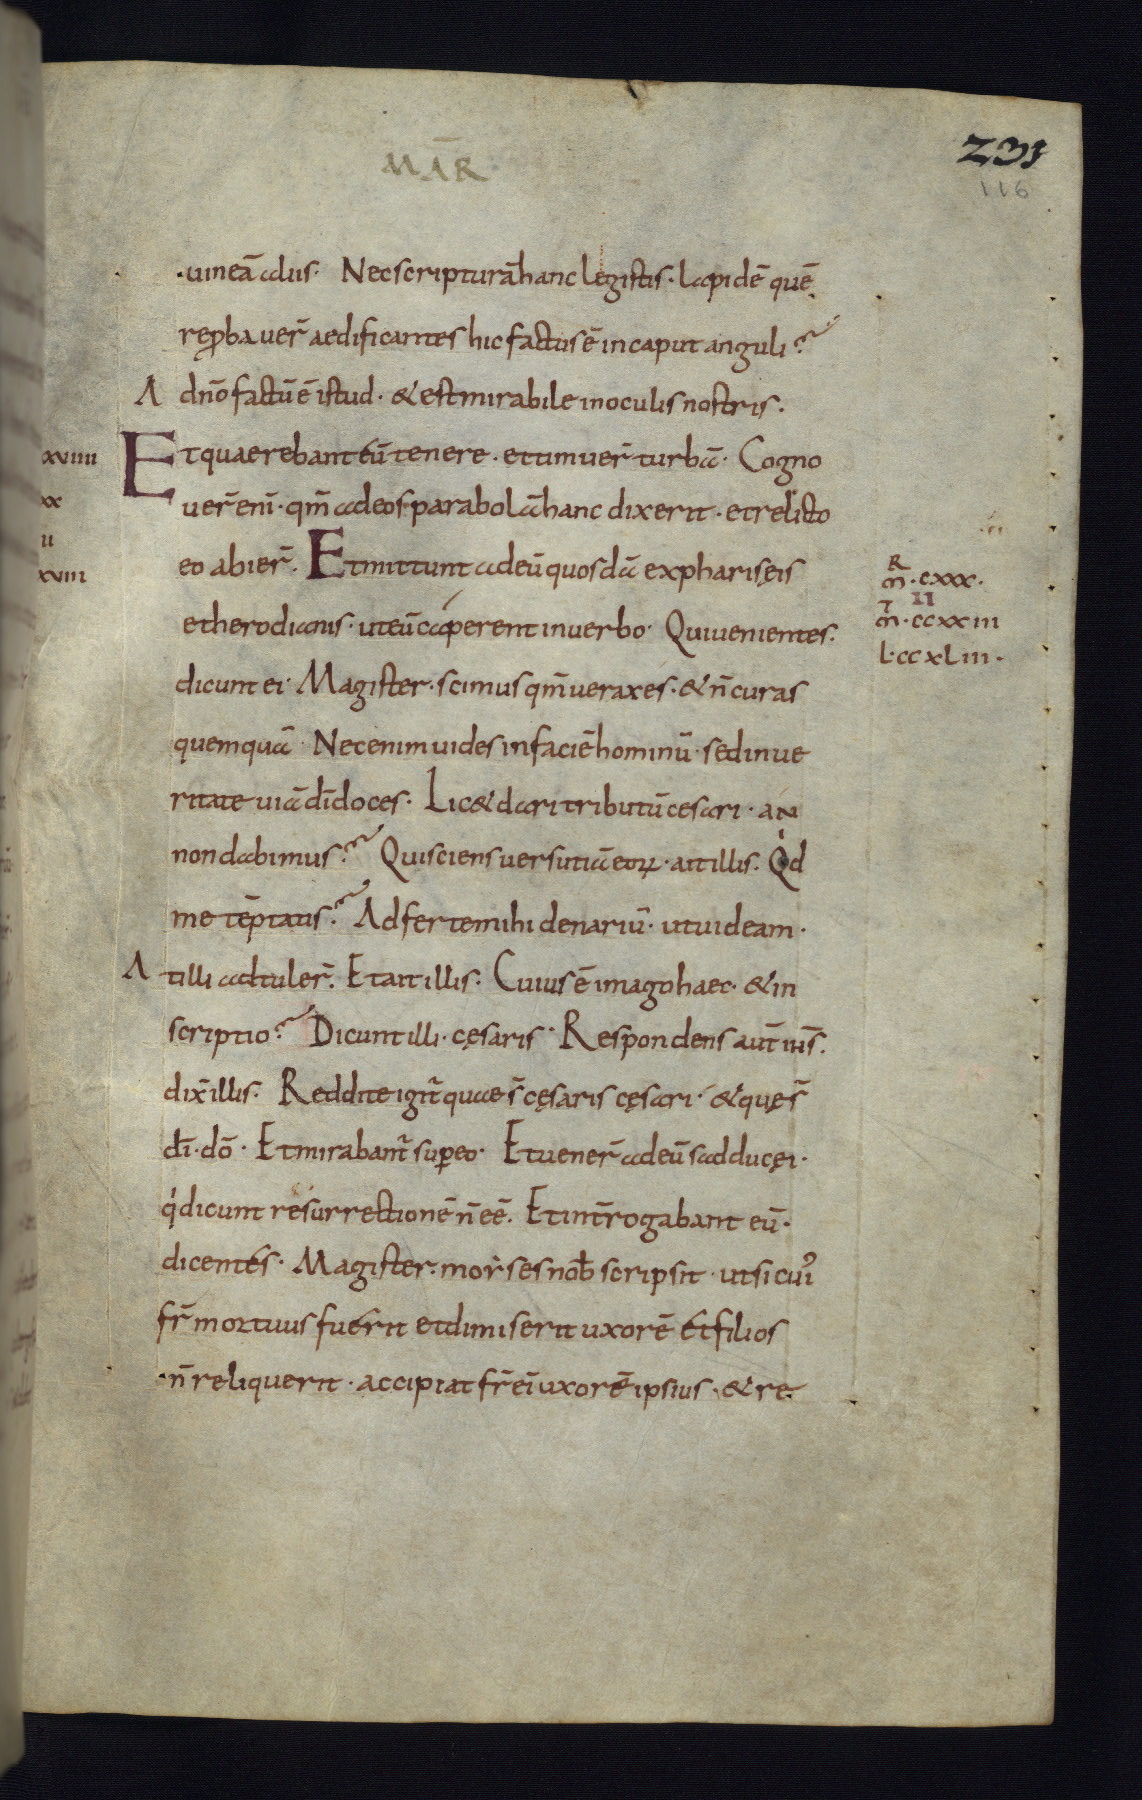 MAR̄
231
116
uineā alus. Nec scripturā hanc legistis. Lapidē quē
reꝓbauer̄ aedificantes hic factus ē in caput anguli?
A dn̄o factū ē istud. & est mirabile in oculis nostris.
xviiii
Et quaerebant eū tenere. et timuer̄ turbā. Cogno
xx
uer̄ eni̅. qm̄ ad eos parabolā hanc dixerit. et relicto
ii
xviii
eo abier̄. Et mittunt ad eū quosdā ex phariseis
R
m̄. cxxx.
et herodianis. ut eū caperent in uerbo. Qui uenientes.
T II
m̄. ccxxiii
L. ccxLiii.
dicunt ei. Magister. scimus qm̄ uerax es. & n̄ curas
quemquā. Nec enim uides in faciē hominū. sed in ue
ritate uiā dī doces. Lic& dari tributū cesari. an
non dabimus? Qui sciens uersutiā eoꝝ. ait illis. Qd
me tēptatis? Adferte mihi denariū. ut uideam.
At illi adtuler̄. Et ait illis. Cuius ē imago haec. & in
scriptio? Dicunt illi. cęsaris. Respondens aut̄ ih̅s.
dix̄ illis. Reddite igit̄ quae s̄ cęsaris cęsari. & quę s̄
dī. dō. Et mirabant̄ super eo. Et uener̄ ad eū sadducęi.
q dicunt resurrectionē n̄ eē. Et int̄rogabant eū.
dicentes. Magister. moyses nob̄ scripsit. ut si cui᾽
fr̄ mortuus fuerit et dimiserit uxorē et filios
n̄ reliquerit. accipiat fr̄ ei᾽ uxorē ipsius. & re